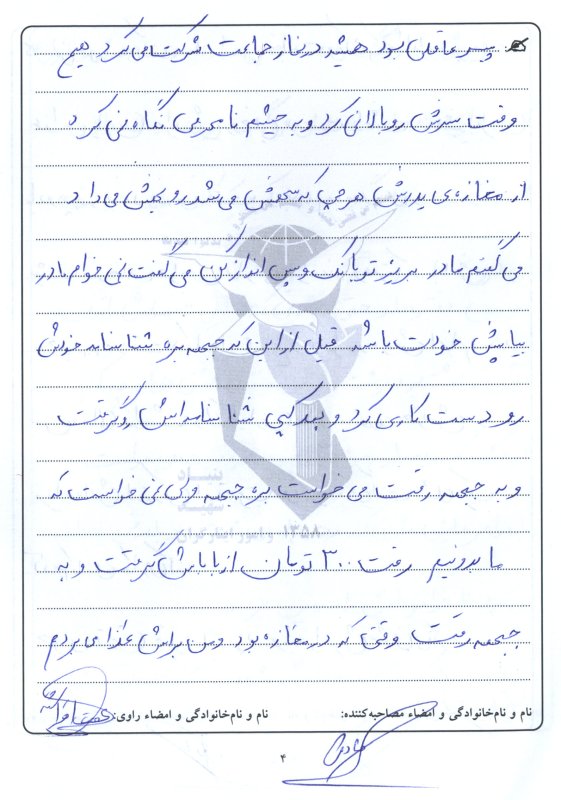 پسر عاقلی بود همیشه در نماز جماعت شرکت می کرد هیچ
وقت سرش رو بالا نمی کرد و به چشم نامحرمی نگاه نمی کرد
از مغازه ی پدرش هر چی که سهمش می شد رو بخش می داد
می گفتم مادر بریز تو بانک و پس انداز کن می گفت نمی خوام مادر
بیا پیش خودت باشد قبل از این که جبهه بره شناسنامه خودش
رو دست کاری کرد و بعد کپی شناسنامه اش رو گرفت
و به جبهه رفت می خواست بره جبهه ولی نمی خواست که
ما بدونیم رفت ۳۰۰ تومان از باباش گرفت و به
جبهه رفت وقتی که در مغازه بود من براش غذا می بردم
نام و نام‌خانوادگی و امضاء مصاحبه‌کننده: نام و نام‌خانوادگی و امضاء راوی:
۴